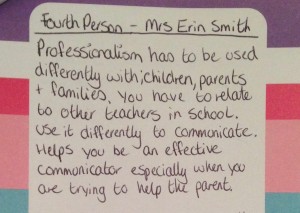 Fourth Person - Mrs Erin Smith
Professionalism has to be used
differently with children, parents
+ families. You have to relate
to other teachers in school.
Use it differently to communicate.
Helps you be an effective
communicator especially when you
are trying to help the parent.